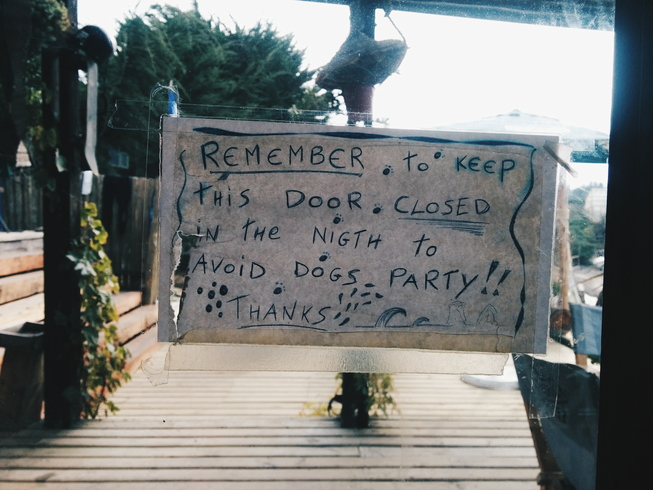 REMEMBER to KEEP
tHIS DOOR CLOSED
iN tHE NIGTH to
AVOiD DOGS PARTY!!
THANKS